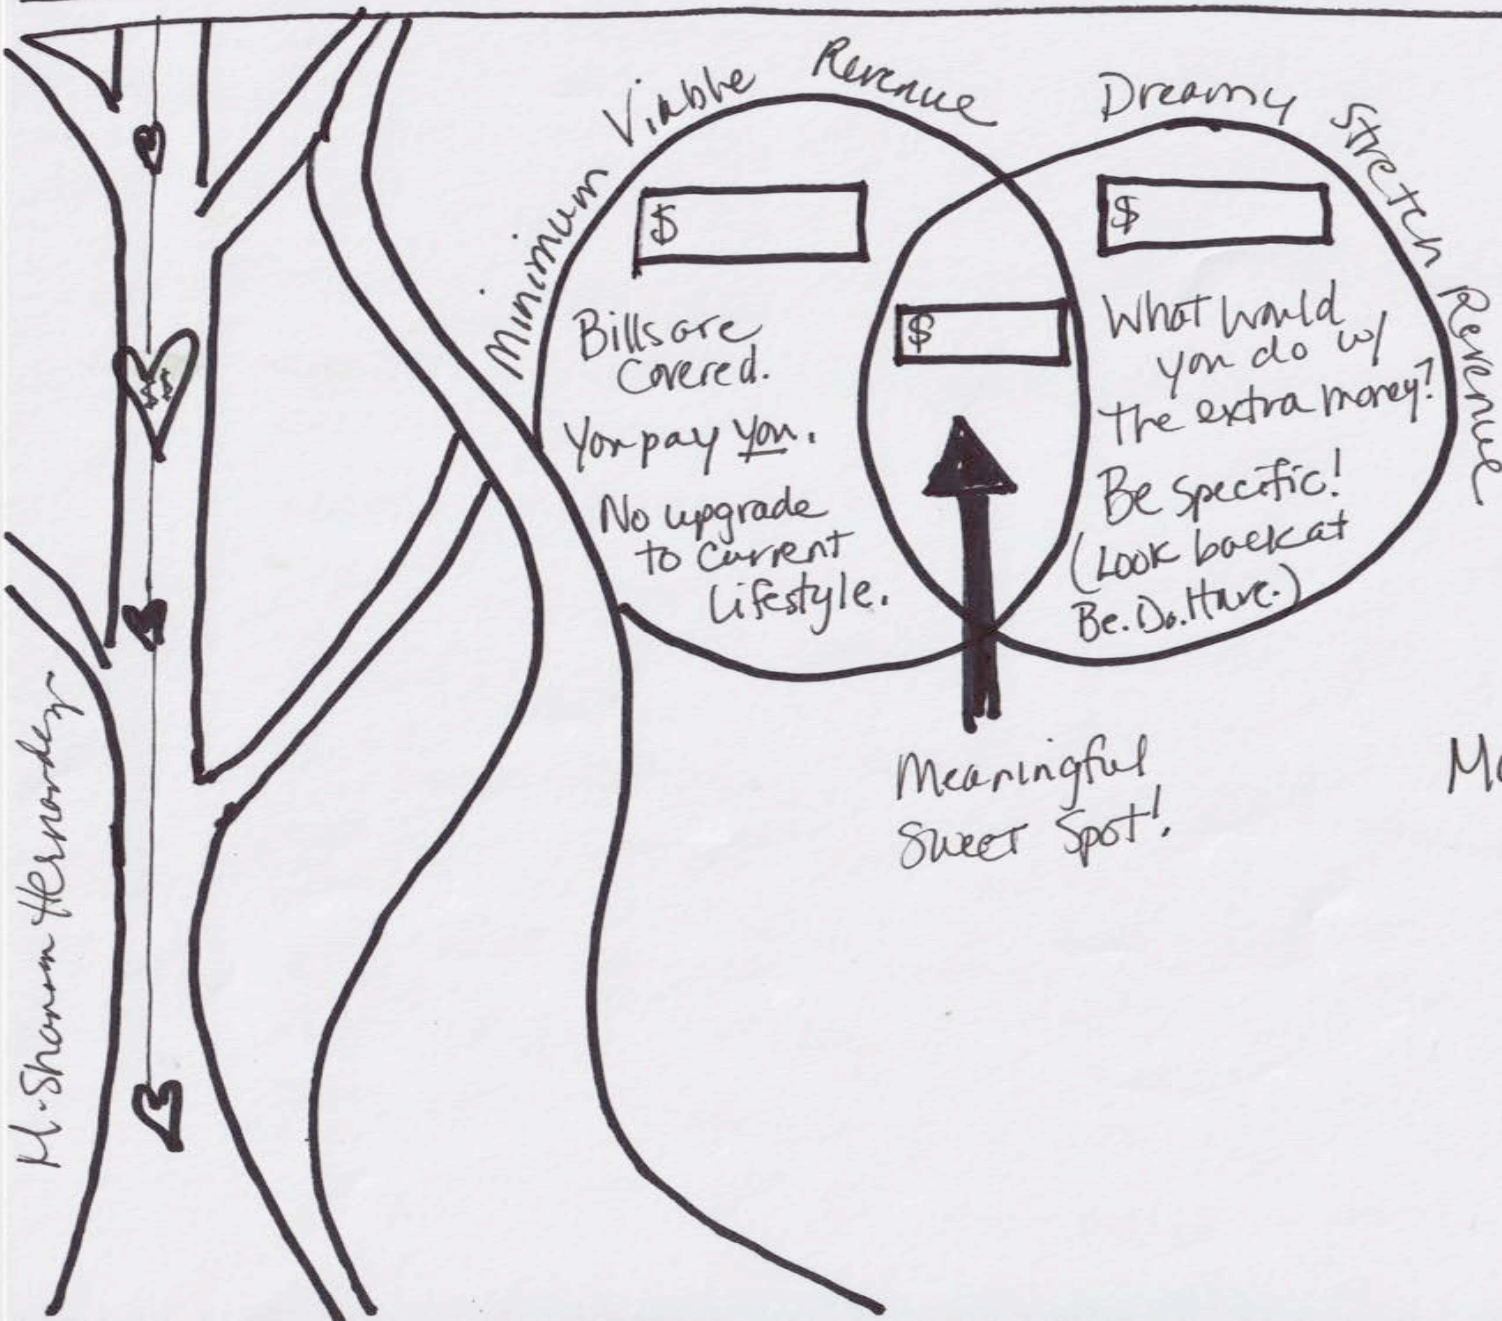 Minimum Viable Revenue
$
Bills are
Covered.
You pay you.
No upgrade
to current
Lifestyle.
$
Dreamy Stretch Revenue
$
What would
you do w/
the extra money?
Be specific!
(Look back at
Be.Do.Have.)
Meaningful
Sweet Spot!
$$
M. Shannon Hernandez